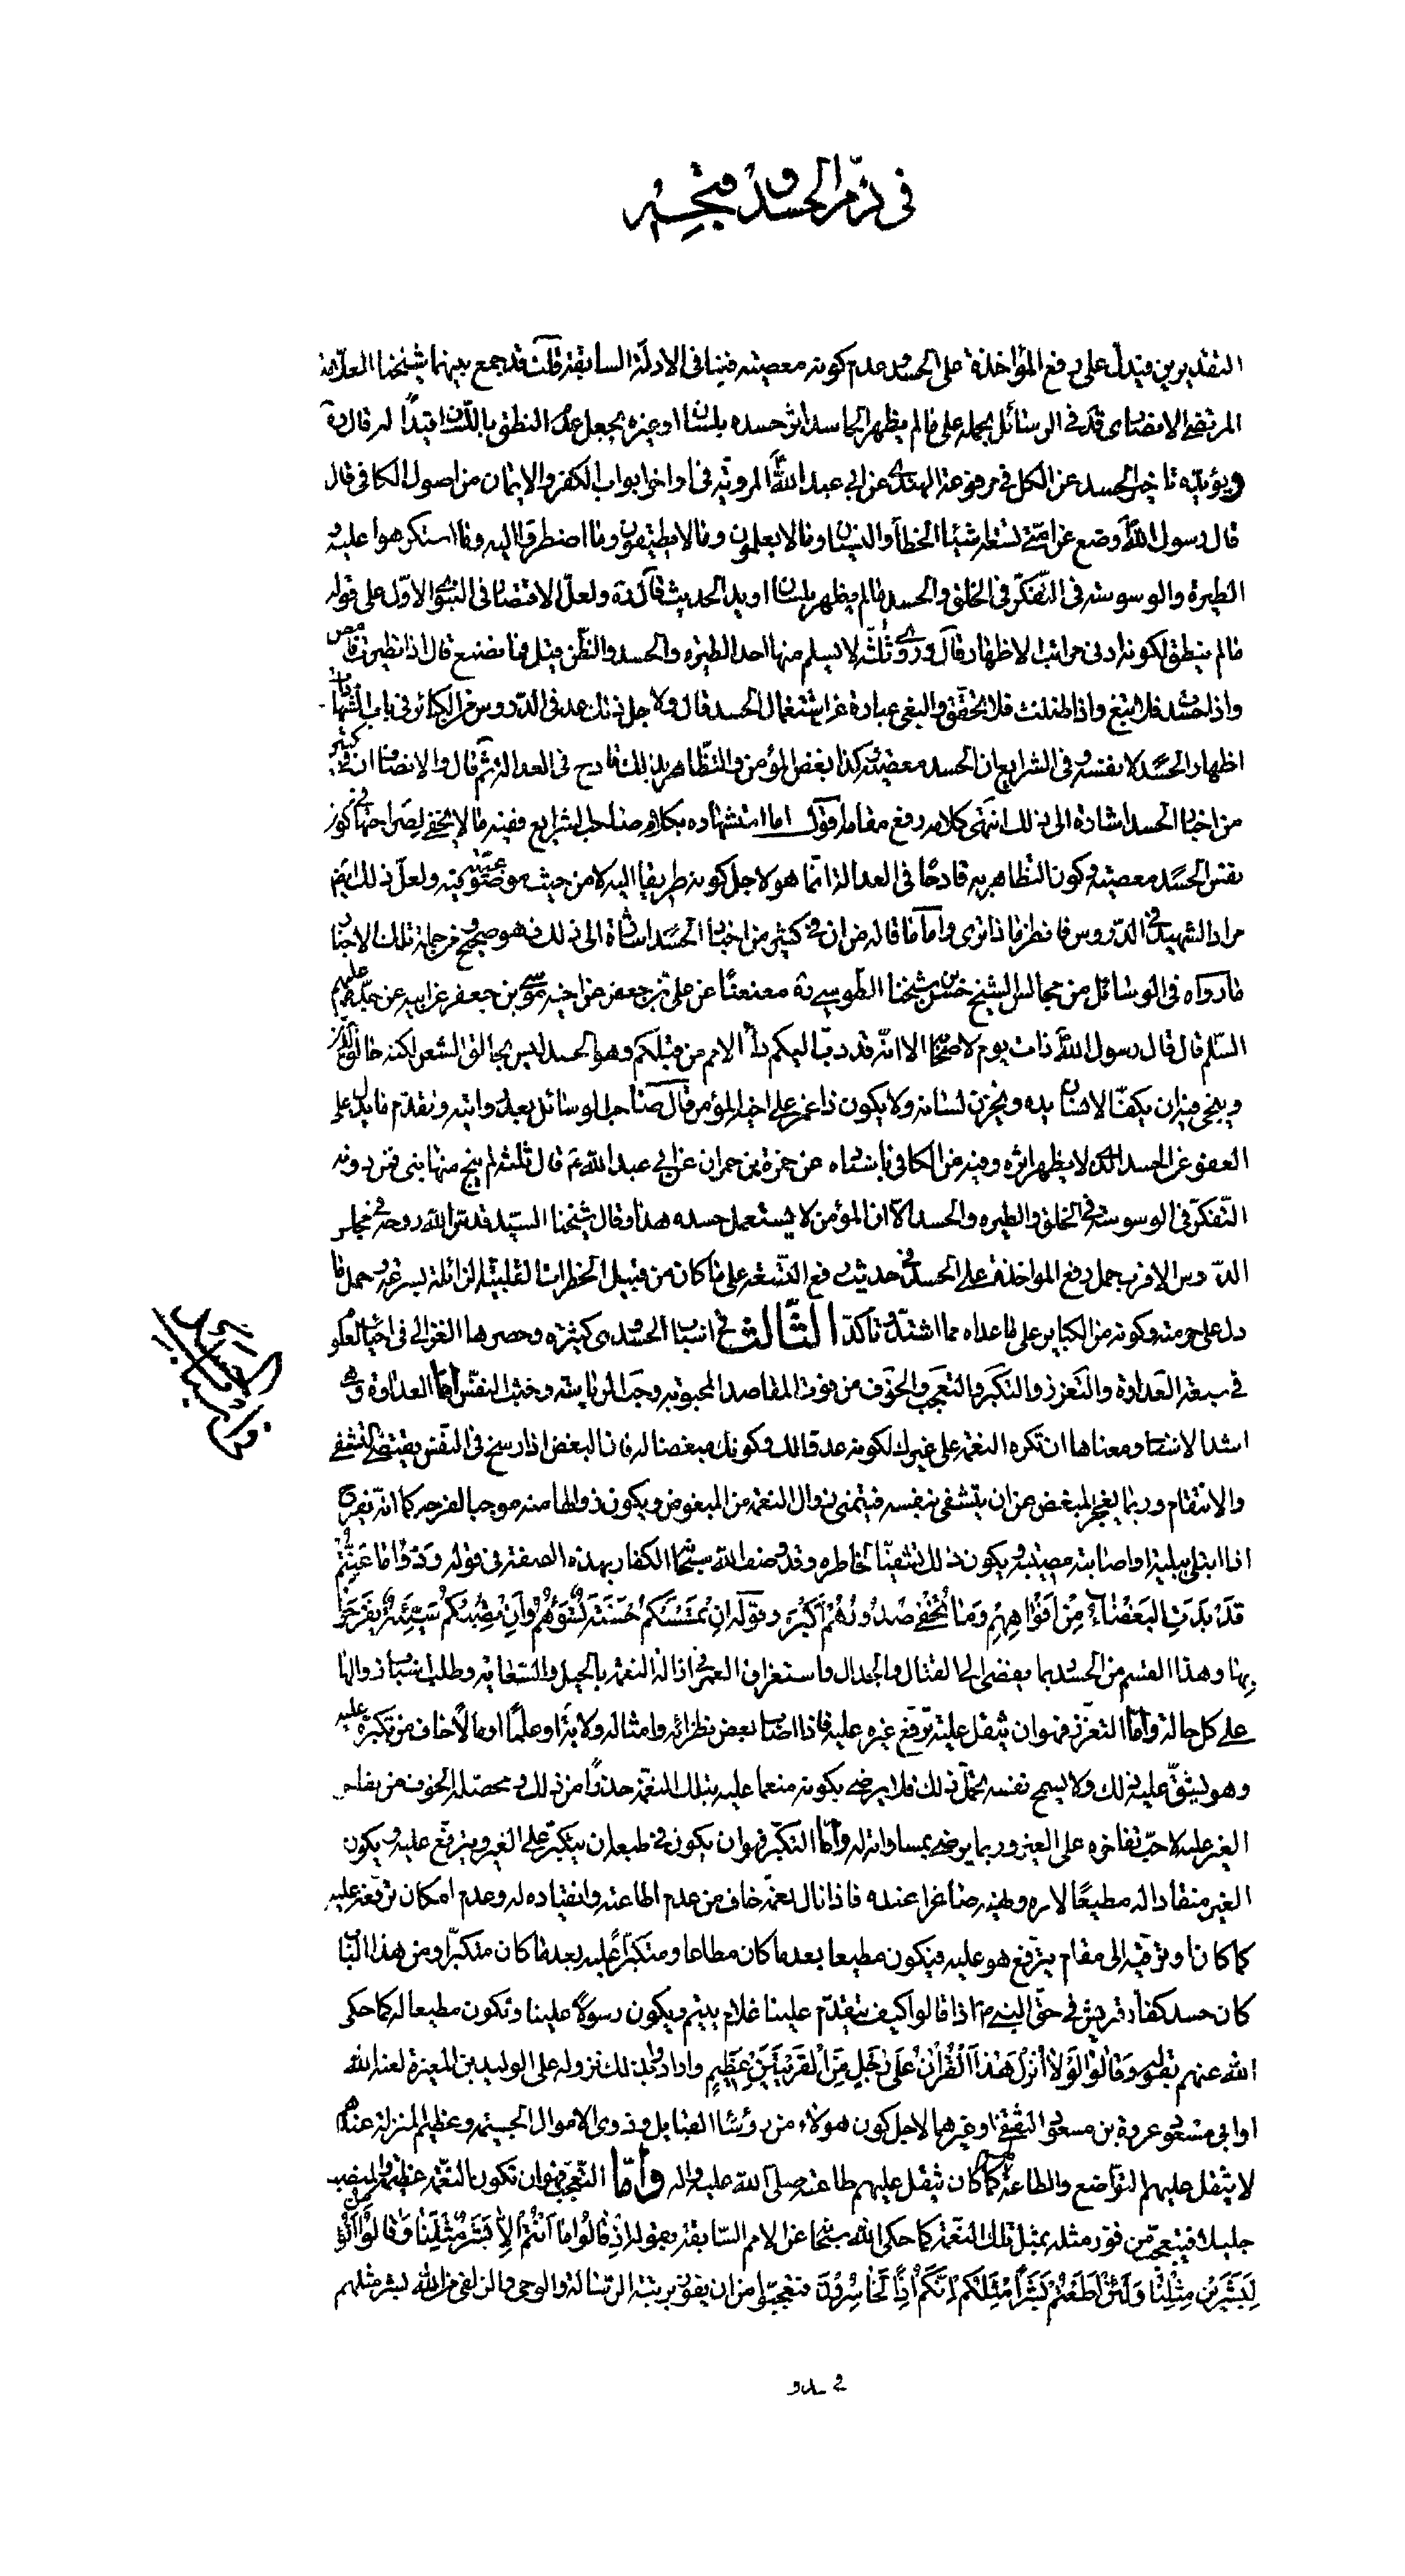 في ذمّ الحسد وقبحه
التقديرين فيدلّ على رفع المؤاخذة على الحسد وعدم كونه معصية فينافي الادلة السابقة قلت قد جمع بينهما شيخنا العلّامة
المرتضى الانصاري قده في الرسائل بحمله على ما لم يظهر الحاسد اثر حسده بلسان او غيره بجعل عدم النطق باللسان قيداً له قال ره
ويؤيّده تاخير الحسد عن الكل في مرفوعة النهدي عن ابي عبد الله المروية في اواخر ابواب الكفر والايمان من اصول الكافي قال
قال رسول الله وضع عن امتي تسعة اشياء الخطأ والنسيان وما لا يعلمون وما لا يطيقون وما اضطروا اليه وما استكرهوا عليه و
الطيرة والوسوسة في التفكّر في الخلق والحسد ما لم يظهر بلسان او يد الحديث قال قده ولعلّ الاقتصار في النبوي الاوّل على قوله
ما لم ينطق لكونه ادنى مراتب الاظهار قال وروى ثلثة لا يسلم منها احد الطيره والحسد والظّن قيل فما نصنع قال اذا تطيرت فامض
واذا حسدت فلا تبغ واذا ظننت فلا تحقّق والبغي عبارة عن استعمال الحسد قال ولاجل ذلك عد في الدّروس من الكبائر في باب الشهادات
اظهار الحسد لا نفسه وفي الشرايع ان الحسد معصية وكذا بغض المؤمن والتظاهر بذلك قادح في العدالة ثم قال والانصاف ان في كثير
من اخبار الحسد اشارة الى ذلك انتهى كلامه رفع مقامه اقول اما استشهاده بكلام صاحب الشرايع ففيه ما لا يخفى لصراحته في كون
نفس الحسد معصية وكون التظاهر به قادحًا في العدالة انّما هو لاجل كونه طريقا اليه لا من حيث موضوعيّته فيه ولعلّ ذلك ايضم
مراد الشهيد في الدّروس فانظر ماذا ترى وامّا ما قاله من ان في كثير من اخبار الحسد اشارة الى ذلك فهو صحيح فمن جملة تلك الاخبار
ما رواه في الوسائل من مجالس الشيخ حسن بن شيخنا الطوسي ره معنعنًا عن علي بن جعفر عن اخيه موسى بن جعفر عن ابيه عن جدّه عليهم
السّلم قال قال رسول الله ذات يوم لاصحابه الا انّه قد دبّ اليكم داء الامم من قبلكم وهو الحسد ليس بحالق الشعر لكنه حالق الدّين
وينجي فيه ان يكفّ الانسان يده ويخزن لسانه ولا يكون ذا غمز على اخيه المؤمن قال صاحب الوسائل بعد روايته وتقدّم ما يدل على
العفو عن الحسد الذي لا يظهر اثره وفيه من الكافي باسناده عن حمزة بن حمران عن ابي عبد الله ع قال ثلثة لم ينج منها نبى فمن دونه
التّفكّر في الوسوسة في الخلق والطيره والحسد الاّ ان المؤمن لا يستعمل حسده هذا وقال شيخنا السيّد قدس الله روحه في مجلس
الدّرس الاقرب حمل رفع المواخذة على الحسد في حديث رفع التّسعة على ما كان من قبيل الخطرات القلبية الزائلة بسرعة وحمل ما
دل على حرمته وكونه من الكباير على ما عداه مما اشتدّ وتاكّد الثّالث في اسباب الحسد وهي كثيرة وحصرها الغزالي في احياء العلوم
في سبعة العداوة والتعزز والتكبر والتعجب والخوف من فوت المقاصد المحبوبة وحب الرياسة وخبث النفس امّا العداوة وهي
اشد الاسباب ومعناها ان تكره النعمة على غيرك لكونه عدوّا لك وكونك مبغضا له فان البغض اذا رسخ في النّفس يقتضي التشفي
والانتقام وربما يعجز المبغض عن ان يتشفى بنفسه فيتمنى زوال النعمة من المبغوض ويكون زوالها منه موجبا لفرحه كما انّه يفرح
اذا ابتلى ببلية او اصابته مصيبة ويكون ذلك تشفيًا لخاطره وقد وصف الله سبحانه الكفار بهذه الصفة في قوله وَدّوُا ما عَنِتُّمْ
قَدْ بَدَتِ الْبَغْضَاءُ مِنْ اَفْوَاهِهِمْ وَمَا تُخْفي صُدُورُهُمْ اَكْبَرُ وقوله اِنْ تَمْسَسْكُمْ حَسَنَةٌ تَسُؤْهُمْ وَاِنْ تُصِبْكُمْ سَيِّئَةٌ يَفْرَحُوا
بِهٰا وهذا القسم من الحسد ربما يفضى الى القتال والجدال واستغراق العمر في ازالة النعمة بالحيل والسّعاية وطلب اسباب زوالها
على كل حالة وامّا التعزز فهو ان يثقل عليه ترفّع غيره عليه فاذا اصاب بعض نظرائه وامثاله ولاية او علمًا او مالًا خاف من تكبّره عليه
وهو يشقّ عليه ذلك ولا يسمح نفسه تحمّل ذلك فلا يرضى بكونه منعما عليه بتلك النعمة حذرًا من ذلك ومحصّله الخوف من تفاخر
الغير عليه لا حبّ تفاخره على الغير وربما يرضى بمساواته له وامّا التكبّر فهو ان يكون في طبعه ان يتكبّر على الغير ويترفّع عليه ويكون
الغير منقادا له مطيعًا لامره ونهيه صاغرا عنده فاذا نال نعمة خاف من عدم اطاعته وانقياده له وعدم امكان ترفّعه عليه
كما كان او ترقيه الى مقام يترفع هو عليه فيكون مطيعا بعد ما كان مطاعا ومتكبرًا عليه بعد ما كان متكبرًا ومن هذا الباب
كان حسد كفار قريش في حقّ النبي ص اذ قالوا كيف يتقدّم علينا غلام يتيم ويكون رسولا علينا ونكون مطيعا له كما حكى
الله عنهم بقوله وَقٰالُوا لَوْلاٰ اُنْزِلَ هٰذَا الْقُرْاٰنُ عَلىٰ رَجُلٍ مِنَ الْقَرْيَتَيْنِ عَظِيمٍ وارادوا بذلك نزوله على الوليد بن المغيرة لعنه الله
او ابي مسعود عروة بن مسعود الثقفي او غيرهما لاجل كون هولاء من رؤساء القبايل وذوي الاموال الجسيمة وعظيم المنزلة عندهم
لا يثقل عليهم التواضع والطاعة لهم كما كان يثقل عليهم طاعته صلى الله عليه واله وأمّا التّعجب فهو ان تكون النّعمة عظيمة والمنصب
جليلا فيتعجّب من فوز مثله بمثل تلك النّعمة كما حكى الله سبحانه عن الامم السّابقة بقوله اِذْ قٰالُوا مٰا اَنْتُمْ اِلاّٰ بَشَرٌ مِثْلُنٰا وَقٰالُوا اَنُؤْمِنُ
لِبَشَرَيْنِ مِثْلِنٰا وَلَئِنْ اَطَعْتُمْ بَشَراً مِثْلَكُمْ اِنَّكُمْ اِذاً لَخٰاسِرُونَ فتعجّبوا من ان يفوز برتبة الرّسالة والوحي والزلفى من الله بشر مثلهم